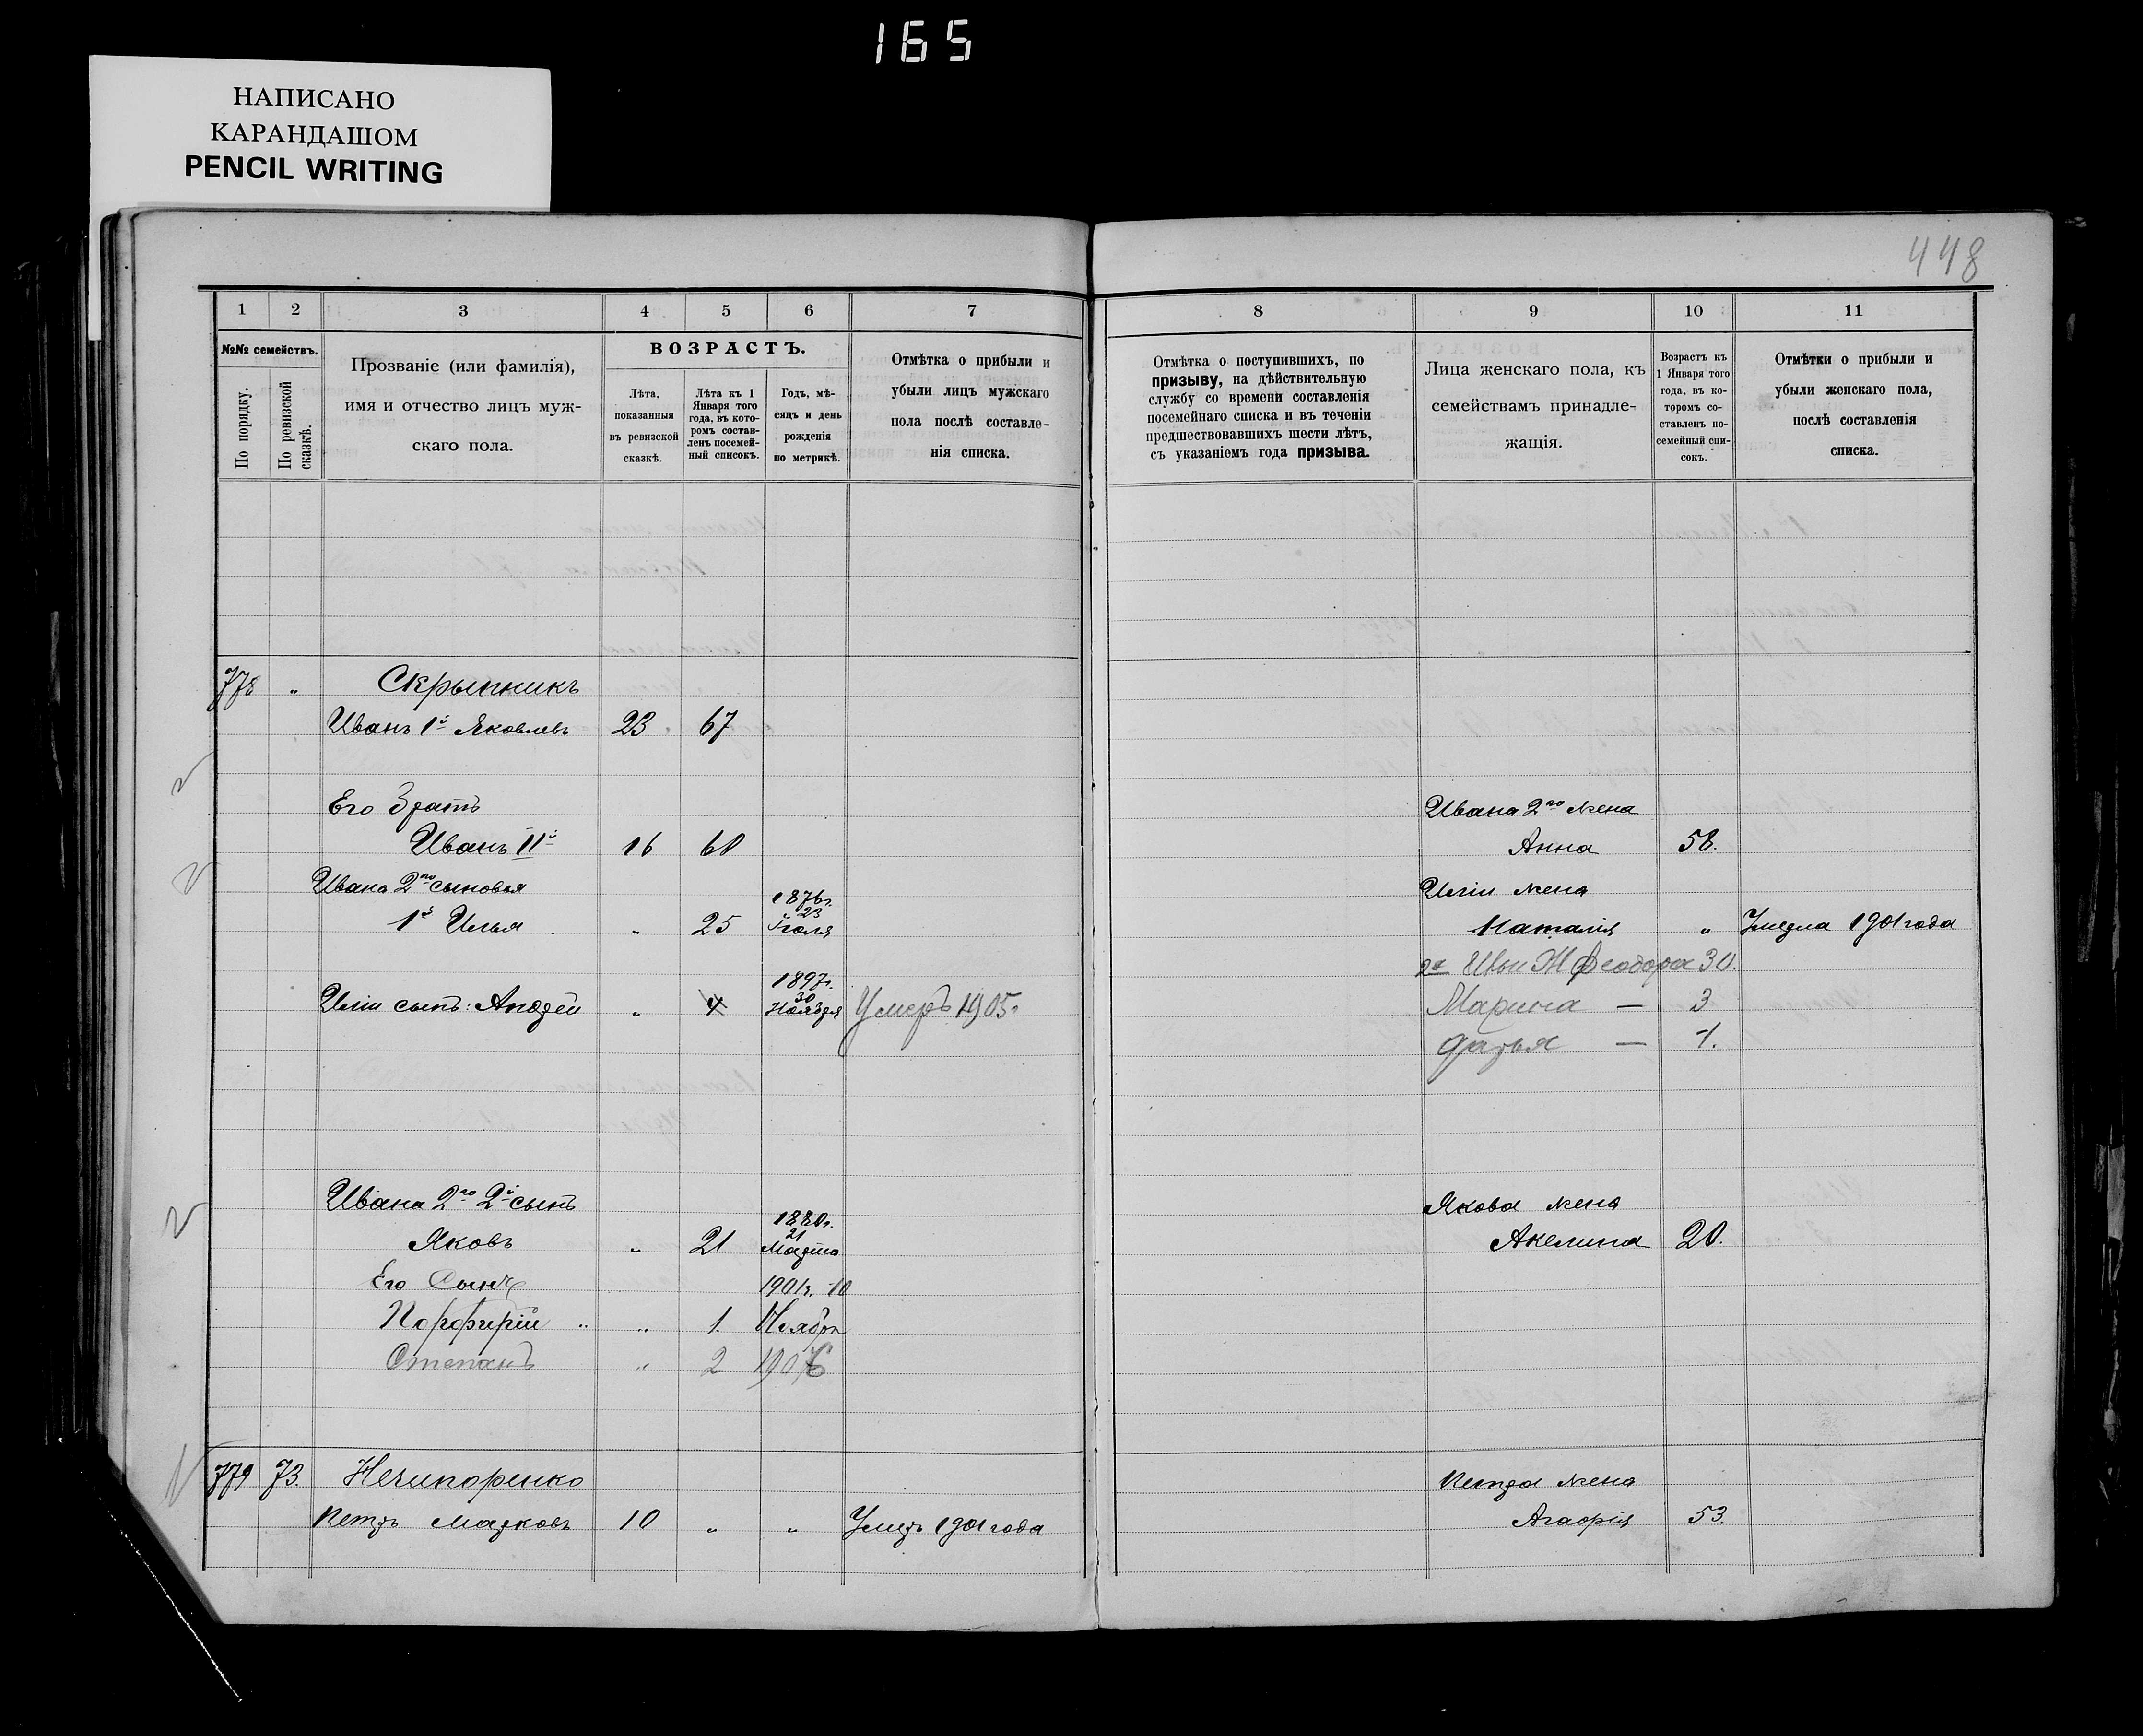 165
НАПИСАНО
КАРАНДАШОМ
PENCIL WRITING
448
1 2 3 4 5 6 7
№№ семействъ.
По порядку.
По ревизской сказкѣ.
Прозваніе (или фамилія),
имя и отчество лицъ муж-
скаго пола.
ВОЗРАСТЪ.
Лѣта,
показанныя
въ ревизской
сказкѣ.
Лѣта къ 1
Января того
года, въ кото-
ромъ состав-
ленъ посемей-
ный списокъ.
Годъ, мѣ-
сяцъ и день
рожденія
по метрикѣ.
Отмѣтка о прибыли и
убыли лицъ мужскаго
пола послѣ составле-
нія списка.
778 „ Скрыпникъ
Иванъ 1й Яковлевъ 23 67
Его Братъ
Иванъ IIй 16 60
Ивана 2го сыновья
1й Илья „ 25 1876г. 23 Іюля
Иліи сынъ: Андрей „ 4 1897г. 30 Ноября Умеръ 1905г
Ивана 2го 2й сынъ
Яковъ „ 21 1880г. 21 Марта
Его Сынъ 1901г. 10
Порфирій „ „ 1. Ноября
Степанъ „ 2 1906
779 73. Нечипоренко
Петръ Марковъ 10 „ „ Умеръ 1901 года
8 9 10 11
Отмѣтка о поступившихъ, по
призыву, на дѣйствительную
службу со времени составленія
посемейнаго списка и въ теченіи
предшествовавшихъ шести лѣтъ,
съ указаніемъ года призыва.
Лица женскаго пола, къ
семействамъ принадле-
жащія.
Возрастъ къ
1 Января того
года, въ ко-
торомъ со-
ставленъ по-
семейный спи-
сокъ.
Отмѣтки о прибыли и
убыли женскаго пола,
послѣ составленія
списка.
Ивана 2го жена
Анна 58.
Иліи жена
Наталія „ Умерла 1901 года
2я Ильи Ж Феодора 30.
Марина — 3
Дарья — 1.
Якова жена
Акелина 20.
Петра жена
Агафія 53.